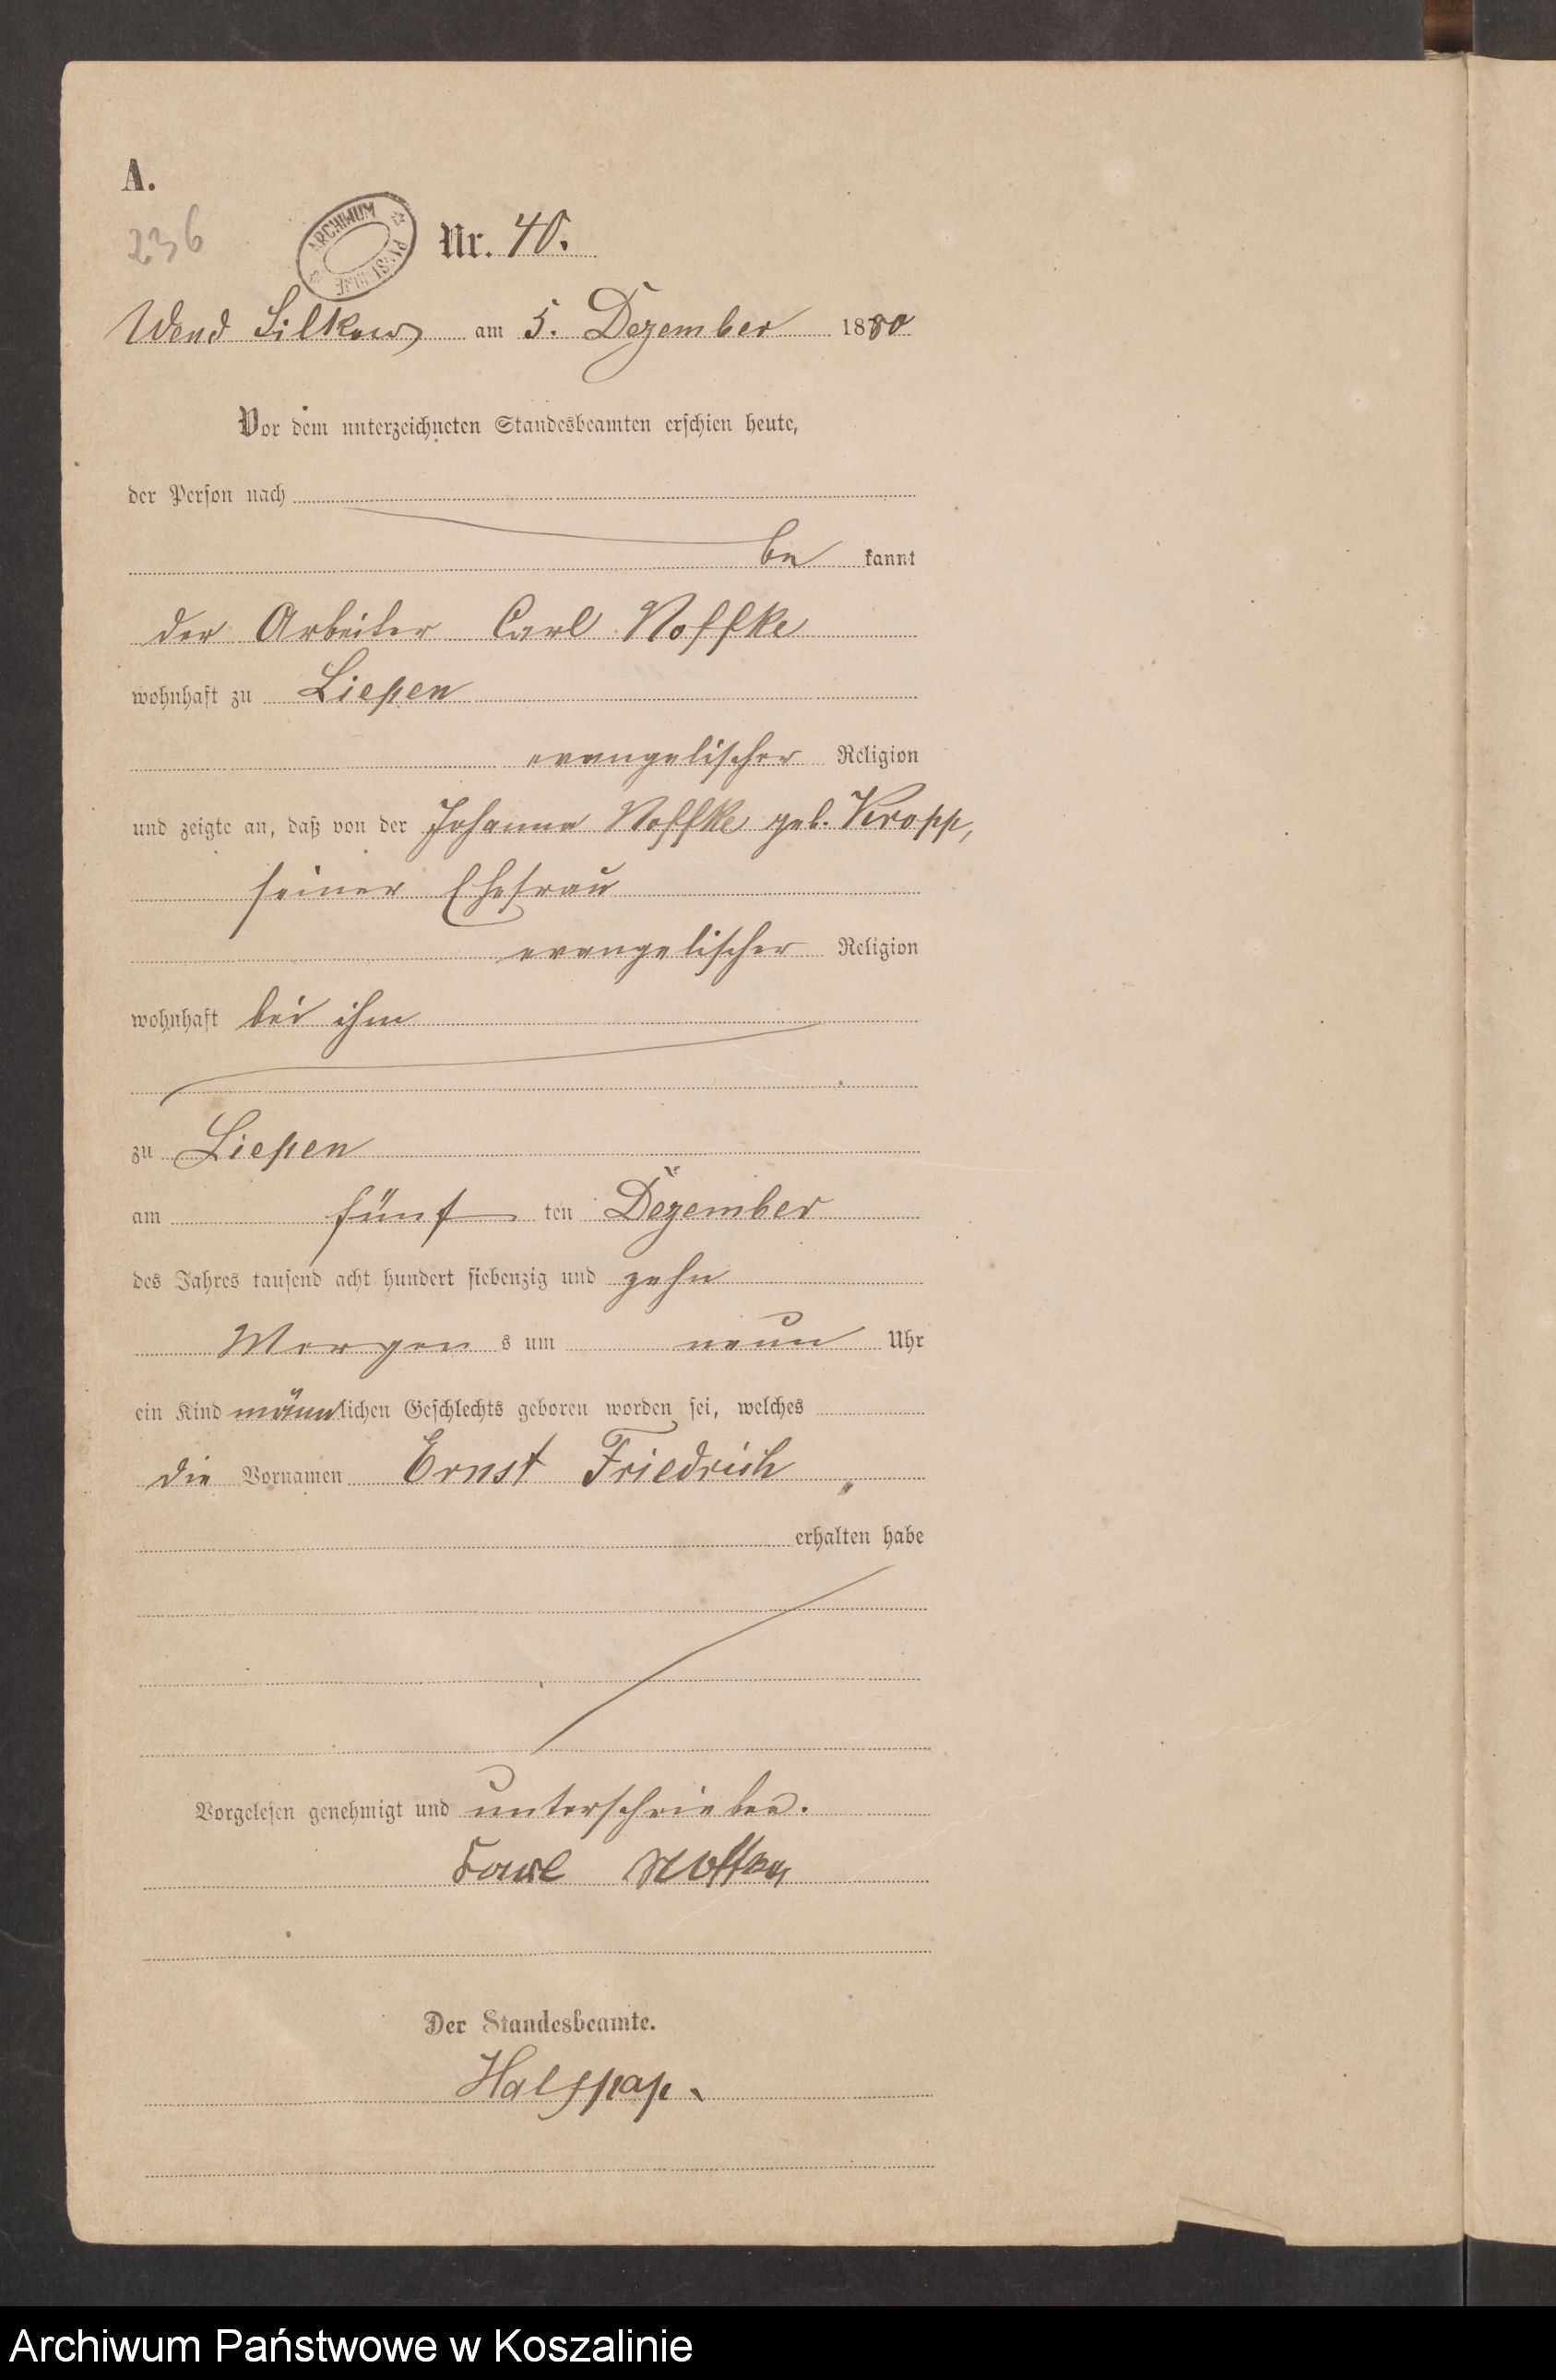 A.
236
ARCHIWUM PAŃSTWOWE
Nr. 40.
Wend Silkow am 5. Dezember 1880
Vor dem unterzeichneten Standesbeamten erschien heute,
der Person nach
be kannt
der Arbeiter Carl Noffke
wohnhaft zu Liepen
evangelischer Religion
und zeigte an, daß von der Johanna Noffke geb. Kropp,
seiner Ehefrau
evangelischer Religion
wohnhaft bei ihm
zu Liepen
am fünf ten Dezember
des Jahres tausend acht hundert siebenzig und zehn
Morgen s um neun Uhr
ein Kind männlichen Geschlechts geboren worden sei, welches
die Vornamen Ernst Friedrich
erhalten habe
Vorgelesen genehmigt und unterschrieben.
Karl
Der Standesbeamte.
Halfpap.
Archiwum Państwowe w Koszalinie